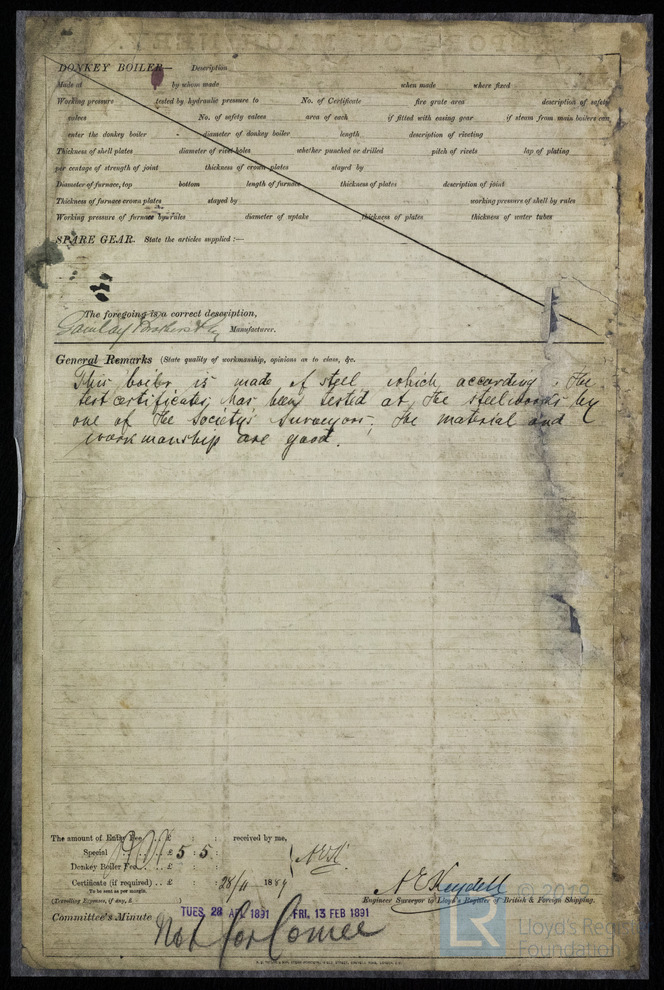 DONKEY BOILER— Description
Made at by whom made when made where fixed
Working pressure tested by hydraulic pressure to No. of Certificate fire grate area description of safety
valves No. of safety valves area of each if fitted with easing gear if steam from main boilers can
enter the donkey boiler diameter of donkey boiler length description of riveting
Thickness of shell plates diameter of rivet holes whether punched or drilled pitch of rivets lap of plating
per centage of strength of joint thickness of crown plates stayed by
Diameter of furnace, top bottom length of furnace thickness of plates description of joint
Thickness of furnace crown plates stayed by working pressure of shell by rules
Working pressure of furnace by rules diameter of uptake thickness of plates thickness of water tubes
SPARE GEAR. State the articles supplied :—
The foregoing is a correct description,
Gourlay Brothers & Co Manufacturer.
General Remarks (State quality of workmanship, opinions as to class, &c.
This boiler is made of steel which according the
test certificates has been tested at the steelworks by
one of the Society's Surveyors; the material and
workmanship are good.
The amount of Entry Fee £ : : received by me,
Special £ 5 : 5 :
Donkey Boiler Fee £ : :
Certificate (if required) £ : : 28/4 1889
To be sent as per margin.
(Travelling Expenses, if any, £
Engineer Surveyor to Lloyd's Register of British & Foreign Shipping.
Committee's Minute TUES. 28 1891 FRI. 13 FEB 1891
Not for Comee
© 2019
LR Lloyd's Register
Foundation